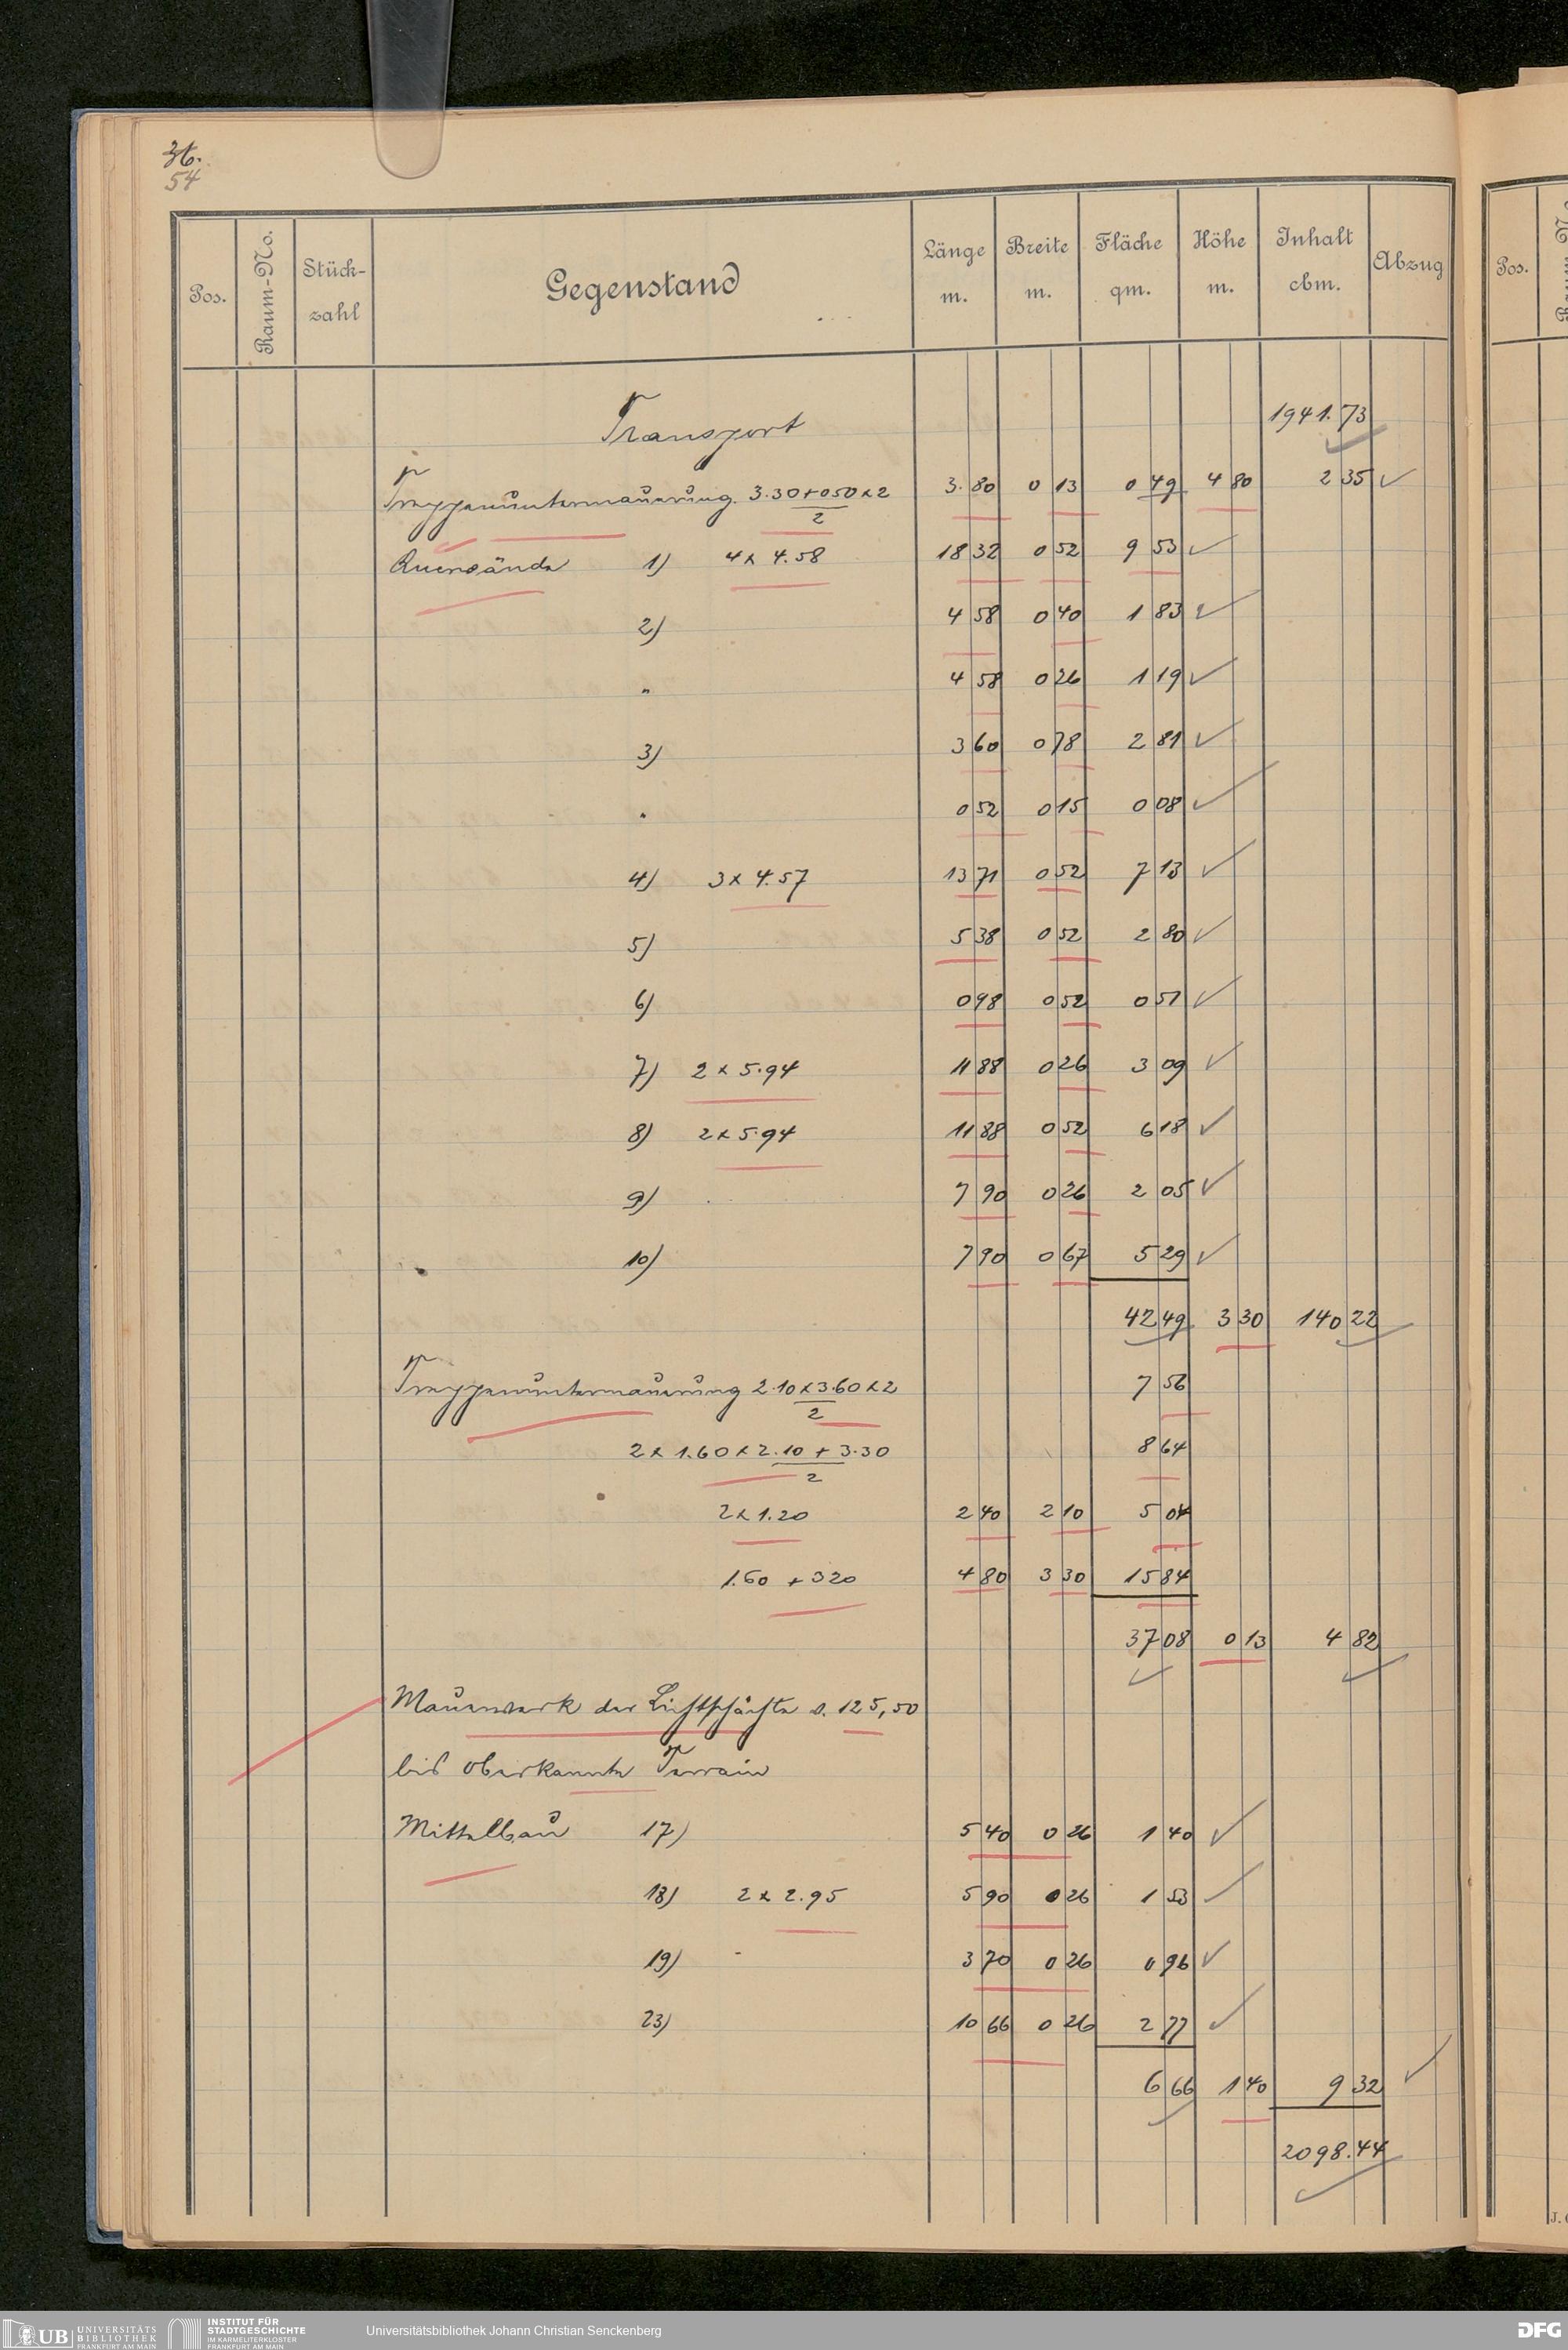 36.
54
Pos. Raum-No. Stück-zahl Gegenstand Länge m. Breite m. Fläche qm. Höhe m. Inhalt cbm. Abzug
Transport 1941.73
Treppenuntermauerung 3.30+050x2 / 2 3.80 0 13 0 49 4 80 2 35
Querwände 1) 4x 4.58 18 32 0 52 9 53
2) 4 58 0 40 1 83
" 4 58 0 26 1 19
3) 3 60 0 78 2 81
" 0 52 0 15 0 08
4) 3x 4.57 13 71 0 52 7 13
5) 5 38 0 52 2 80
6) 0 98 0 52 0 51
7) 2 x 5.94 11 88 0 26 3 09
8) 2x 5.94 11 88 0 52 6 18
9) 7 90 0 26 2 05
10) 7 90 0 67 5 29
42 49 3 30 140 22
Treppenuntermauerung 2.10x3.60x2 / 2 7 56
2x 1.60x2.10 + 3.30 / 2 8 64
2x1.20 2 40 2 10 5 04
1.60 + 320 4 80 3 30 15 84
37 08 0 13 4 82
Mauerwerk der Lichtschächte v. 125,50
bis Oberkannte Terrain
Mittelbau 17) 5 40 0 26 1 40
18) 2x 2.95 5 90 0 26 1 53
19) 3 70 0 26 0 96
23) 10 66 0 26 2 77
6 66 1 40 9 32
2098.44
Pos.
UB UNIVERSITÄTS BIBLIOTHEK FRANKFURT AM MAIN
INSTITUT FÜR STADTGESCHICHTE IM KARMELITERKLOSTER FRANKFURT AM MAIN
Universitätsbibliothek Johann Christian Senckenberg
DFG